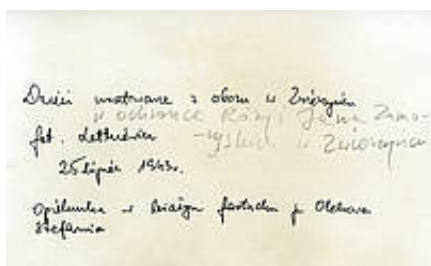 Dzieci uratowane z obozu w Zwierzyńcu
w ochronce Róży i Jana Zamo-
fot.
-yskich w Zwierzyńcu
25 lipiec 1943r.
Opiekunka w białym fartuchu p. Olchowa
Stefania